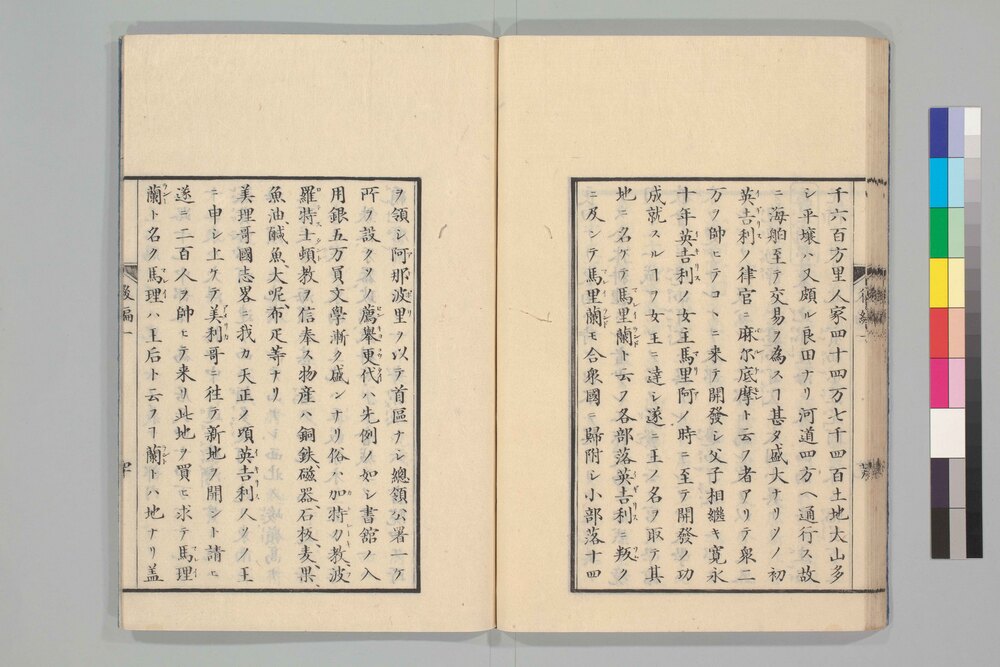 千六百方里人家四十四万七千四百土地大山多
シ平壌ハ又頗ル良田ナリ河道四方ヘ通行ス故
ニ海舶至テ交易ヲ為スヿ甚タ盛大ナリソノ初
英吉利ノ律官ニ麻尔底摩ト云フ者アリテ衆二
万ヲ帥ヒテコヽニ来テ開發シ父子相継キ寛永
十年英吉利ノ女主馬里阿ノ時ニ至テ開發ノ功
成就スルヿヲ女王ニ達シ遂ニ王ノ名ヲ取テ其
地ニ名ケテ馬里蘭ト云フ各部落英吉利ニ叛ク
ニ及ンテ馬里蘭モ合衆國ニ歸附シ小部落十四
ヲ領シ阿那波里ヲ以テ首區ナシ總領公署一ケ
所ヲ設ク又薦舉更代ハ先例ノ如シ書館ノ入
用銀五万員文學漸ク盛ンナリ俗加特力教波
羅特士頓教ヲ信奉ス物産ハ銅鉄、磁器、石板、麦、果、
魚油、鹹魚、大呢、布疋等ナリ
美理哥國志畧ニ我カ天正ノ頃英吉利人ソノ王
ニ申シ上ケテ美利哥ニ往テ新地ヲ開シト請ヒ
遂ニ二百人ヲ帥ヒテ来リ此地ヲ買ヒ求テ馬理
蘭ト名ク馬理ハ王后ト云フヿ蘭トハ地ナリ盖
後編一